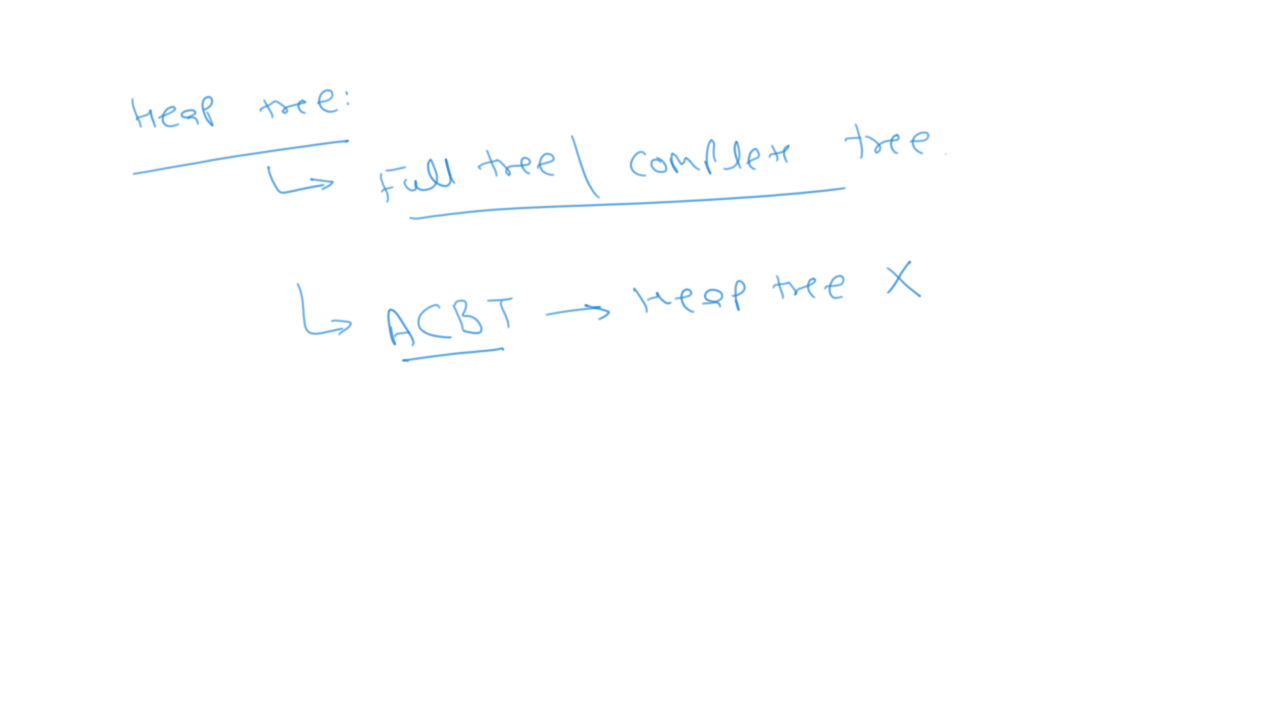 Heap tree:
↳ Full tree \ complete tree
↳ ACBT → Heap tree X